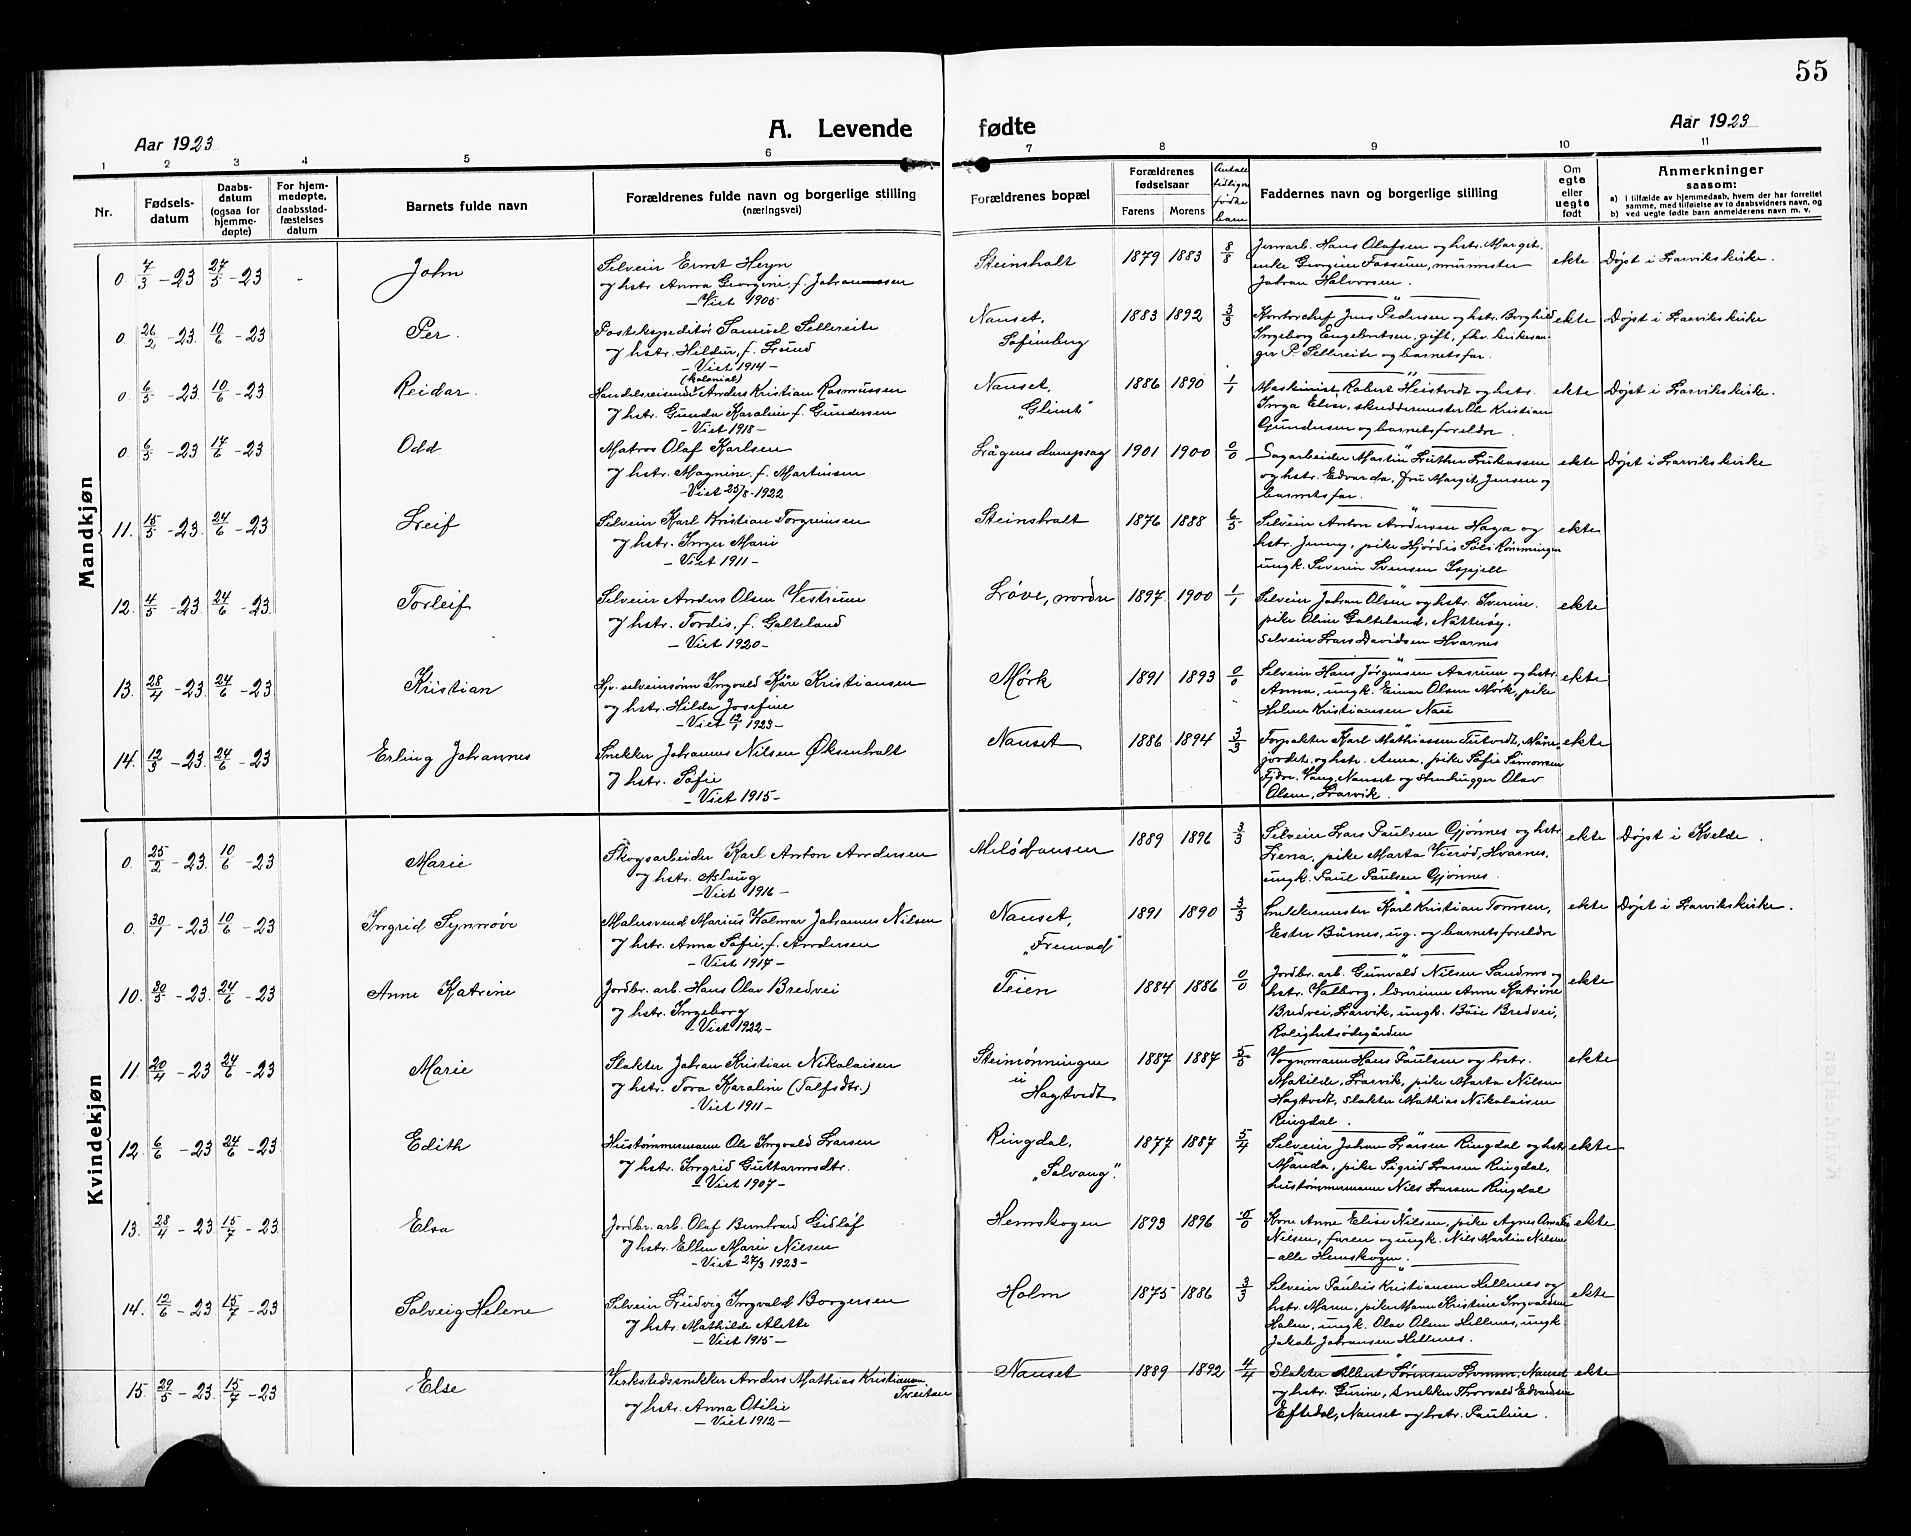 55
A. Levende fødte
Aar 1923
Aar 1923
1 2 3 4 5 6 7 8 9 10 11
Nr.
Fødsels-
datum
Daabs-
datum
(ogsaa for
hjemme-
døpte)
For hjem-
medøpte,
daabsstad-
fæstelses
datum
Barnets fulde navn
Forældrenes fulde navn og borgerlige stilling
(næringsvei)
Forældrenes bopæl
Forældrenes
fødselsaar
Farens Morens
Antall
tidligere
fødte
barn
Faddernes navn og borgerlige stilling
Om
egte
eller
uegte
født
Anmerkninger
saasom:
a) I tilfælde av hjemmedaab, hvem der har forrettet
samme, med tilføielse av to daabsvidners navn, og
b) ved uegte fødte barn anmelderens navn m. v.
Mandkjøn
0. 7/3 - 23 27/5 - 23 - John
Selveier Ernst Heyn
og hstr. Anna Georgine, f. Johannessen
- Viet 1905
Steinsholt 1879 1883 8/8
Jernarb. Hans Olafsen og hstr. Marget,
enke Georgine Fossum, murmester
Johan Halvorsen.
ekte Døpt i Larvikskirke.
0. 26/2 - 23 10/6 - 23 Per.
Postekspeditør Samuel Sellereite
og hstr. Hildur, f. Lund
- Viet 1914 -
Nanset,
Sofienberg
1883 1892 3/3
Kontorchef Jens Pedersen og hstr. Borghild
Ingeborg Engebretsen, gift, fhv. kirkesan-
ger P. Sellereite og barnets far.
ekte Døpt i Larvikskirke
0. 6/5 - 23 10/6 - 23 Reidar.
(kolonial)
Handelsreisende Anders Kristian Rasmussen
og hstr. Gunda Karoline f. Gundersen
- Viet 1918 -
Nanset,
„Glimt"
1886 1890 1/1
Maskinist Robert Heistvedt og hstr.
Inga Elise, skreddermester Ole Kristian
Gundersen og barnets foreldre.
ekte Døpt i Larvikskirke.
0. 6/5 - 23 17/6 - 23 Odd
Matros Olaf Karlsen
og hstr. Magnine, f. Martinsen
- Viet 25/8 - 1922
Lågens dampsag 1901 1900 0/0
Sagarbeider Martin Luther Lukassen
og hstr. Edvarda, fru Margit Jensen og
barnets far.
ekte Døpt i Larvikskirke
11. 15/5 - 23 24/6 - 23 Leif
Selveier Karl Kristian Torgrimsen
og hstr. Inger Marie
- Viet 1911 -
Steinsholt 1876 1888 6/5
Selveier Anton Andersen Haga og
hstr. Jenny, pike Hjørdis Rønningen
ungk. Severin Svensen
ekte
12. 4/5 - 23 24/6 - 23 Torleif
Selveier Anders Olsen Vestrum
og hstr. Tordis, f. Galteland
- Viet 1920 -
Løve, nordre 1897 1900 1/1
Selveier Johan Olsen og hstr. Sverine.
pike Oline Galteland,
selveier Lars Davidsen Hvarnes
ekte
13. 28/4 - 23 24/6 - 23 Kristian
Hjv. selveiersønn Ingvald Kåre Kristiansen
og hstr. Hilda Josefine
- Viet 1923 -
Mørk 1891 1893 0/0
Selveier Hans Jørgensen Aasrum og hstr.
Anna, ungk. Einar Olsen Mørk, pike
Helene Kristiansen
ekte
14. 12/3 - 23 24/6 - 23 Erling Johannes
Snekker Johannes Nilsen Øksenholt
og hstr. Sofie
- Viet 1915 -
Nanset 1886 1894 3/3
Forpakter Karl Mathiassen Tutvedt, Måne-
jordet og hstr. Anna, pike Sofie Simonsen
Nanset og stenhugger Olav
Olsen, Larvik.
ekte
Kvindekjøn
0. 25/2 - 23 10/6 - 23 Marie
Skogsarbeider Karl Anton Andersen
og hstr. Aslaug
- Viet 1916 -
1889 1896 3/3
Selveier Lars Paulsen Gjønnes og hstr
Lena, pike Marta Vierød, Hvarnes,
ungk. Paul Paulsen Gjønnes.
ekte Døpt i Kvelde.
0. 30/1 - 23 10/6 - 23 Ingrid Synnøve
Malersvend Marius Valmar Johannes Nilsen
og hstr. Anna Sofie, f. Andersen
- Viet 1917 -
Nanset,
„Fremad"
1891 1890 3/3
Karl Kristian Tomsen,
Ester Bårnes, ug. og barnets foreldre
ekte Døpt i Larvikskirke.
10. 30/5 - 23 24/6 - 23 Anne Katrine
Jordbr. arb. Hans Olav Bredvei
og hstr. Ingeborg
Viet 1922 -
Teien 1884 1886 0/0
Jordbr. arb. Gunvald Nilsen Sandmo og
hstr. Valborg, lærerinne Anne Katrine
Bredvei, Larvik, ungk. Båie Bredvei,
Rolighetsødegården
ekte
11. 20/4 - 23 24/6 - 23 Marie
Slakter Johan Kristian Nikolaisen
og hstr. Tora Karoline (Tolfsdtr.)
- Viet 1911 -
Steinrønningen
u/
Hagtvedt
1887 1887 5/5
Vognmann Hans Paulsen og hstr.
Matilde, Larvik, pike Marta Nilsen
Hagtvedt, slakter Mathias Nikolaisen
Ringdal.
ekte
12. 6/6 - 23 24/6 - 23 Edith
Hustømmermann Ole Ingvald Larsen
og hstr. Ingrid Guttormsdtr.
- Viet 1907 -
Ringdal,
„Solvang".
1877 1887 5/4
Selveier Johan Larsen Ringdal og hstr
Manda, pike Sigrid Larsen Ringdal,
hustømmermann Nils Larsen Ringdal
ekte
13. 28/4 - 23 15/7 - 23 Elsa
Jordbr. arb. Olaf Berntrand Gidløf
og hstr. Ellen Marie Nilsen
- Viet 27/3 1923 -
Hemskogen 1893 1896 0/0
Kone Anne Elise Nilsen, pike Agnes Amalie
Nilsen, faren og ungk. Nils Martin Nilsen
- alle Hemskogen.
ekte
14. 12/6 - 23 15/7 - 23 Solveig Helene
Selveier Ludvig Ingvald Borgersen
og hstr. Mathilde Alette
- Viet 1915 -
Holm 1875 1886 3/3
Selveier Paulus Kristiansen Hellenes og
hstr. Maren, pike Maren Kristine Ingvaldsen
Holm, ungk. Olav Olsen Hellenes, ungk.
Jakob Johansen Hellenes.
ekte
15. 29/5 - 23 15/7 - 23 Else
Verkstedssnekker Anders Mathias Kristiansen
Tveitan
og hstr. Anna Otilie
- Viet 1912 -
Nanset 1889 1892 4/4
Slakter Albert Sørensen Nanset
og hstr. Gurine, snekker Thorvald Edvardsen
Eftedal, Nanset og hstr. Pauline.
ekte